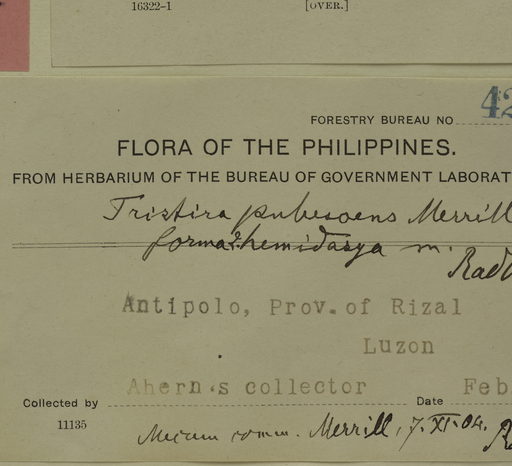 16322-1 [OVER.]
FORESTRY BUREAU NO. 42
FLORA OF THE PHILIPPINES.
FROM HERBARIUM OF THE BUREAU OF GOVERNMENT LABORAT
Tristira pubescens Merrill
forma hemidasya m.
Radl
Antipolo, Prov. of Rizal
Luzon
Collected by Ahern's collector Date Feb
11135
Mecum comm. Merrill, 7. XI. 04.